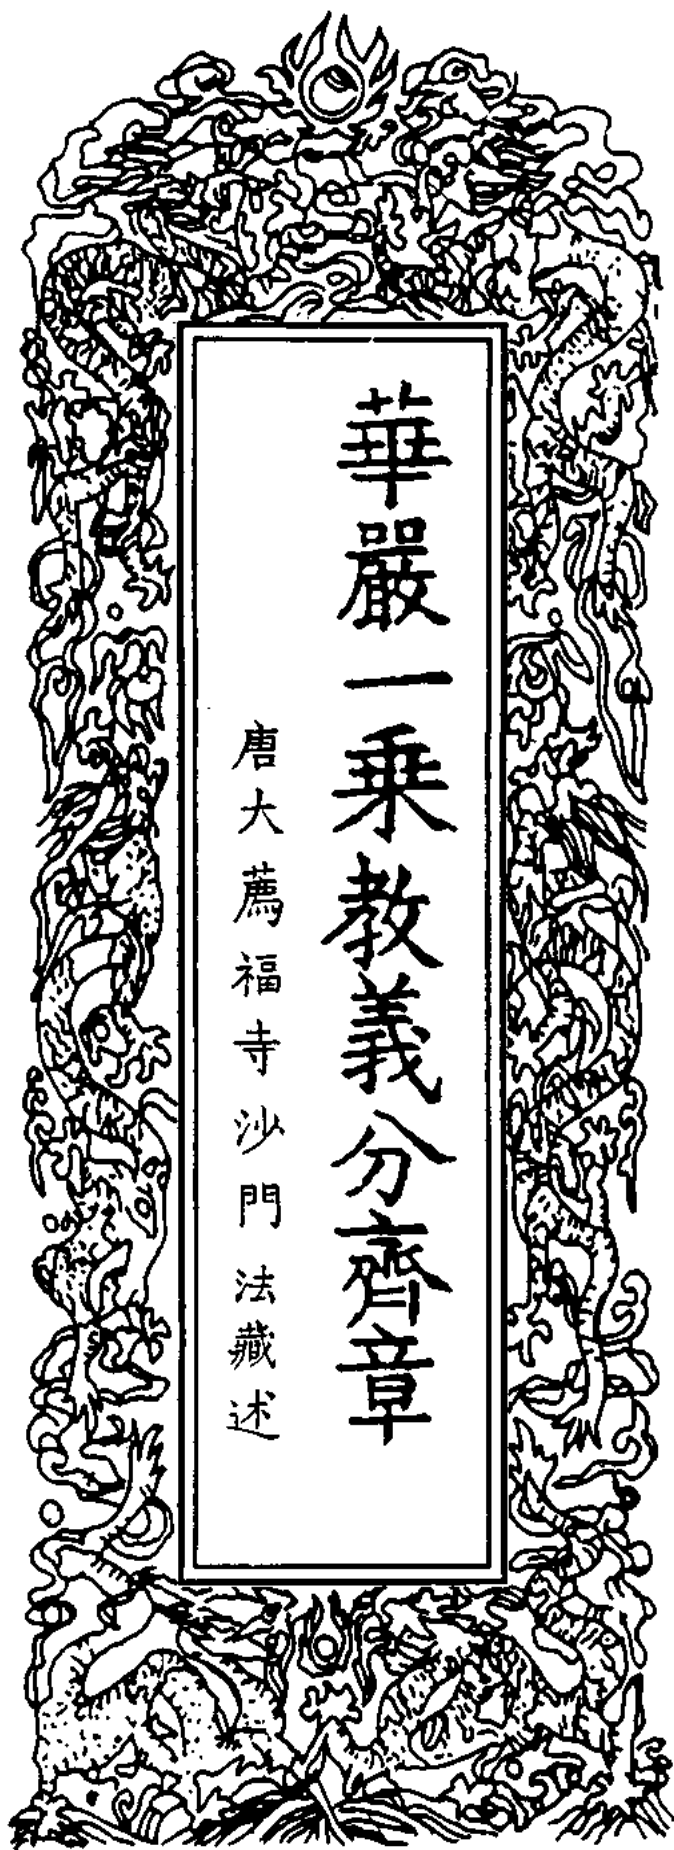 華嚴一乗教義分齊章
唐大薦福寺沙門法藏述